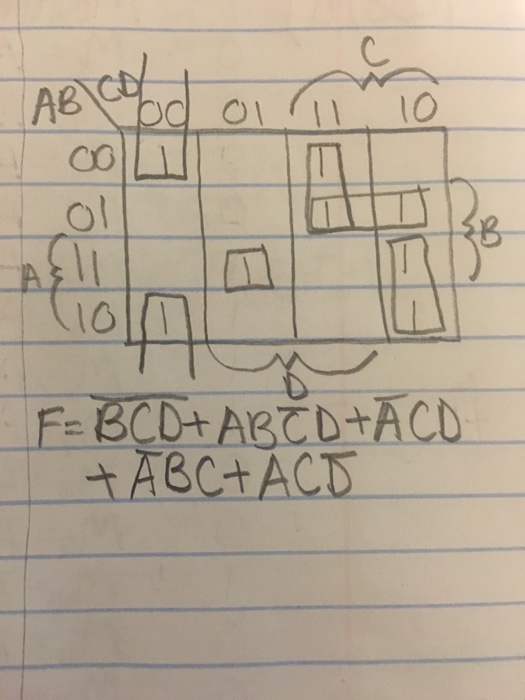 C
AB CD 00 01 11 10
00 1 1
01 1 1 B
A 11 1 1
10 1 1
D
F = B̅C̅D̅ + ABC̅D + A̅CD
+ A̅BC + ACD̅